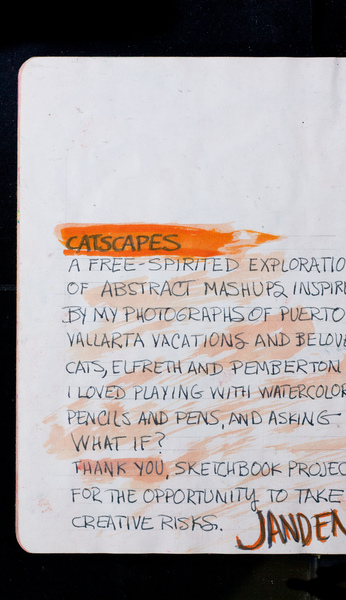 CATSCAPES
A FREE-SPIRITED EXPLORATIO
OF ABSTRACT MASHUPS INSPIR
BY MY PHOTOGRAPHS OF PUERTO
VALLARTA VACATIONS AND BELOV
CATS, ELFRETH AND PEMBERTON
I LOVED PLAYING WITH WATERCOLOR
PENCILS AND PENS, AND ASKING
WHAT IF?
THANK YOU, SKETCHBOOK PROJEC
FOR THE OPPORTUNITY TO TAKE
CREATIVE RISKS.
JANDEN